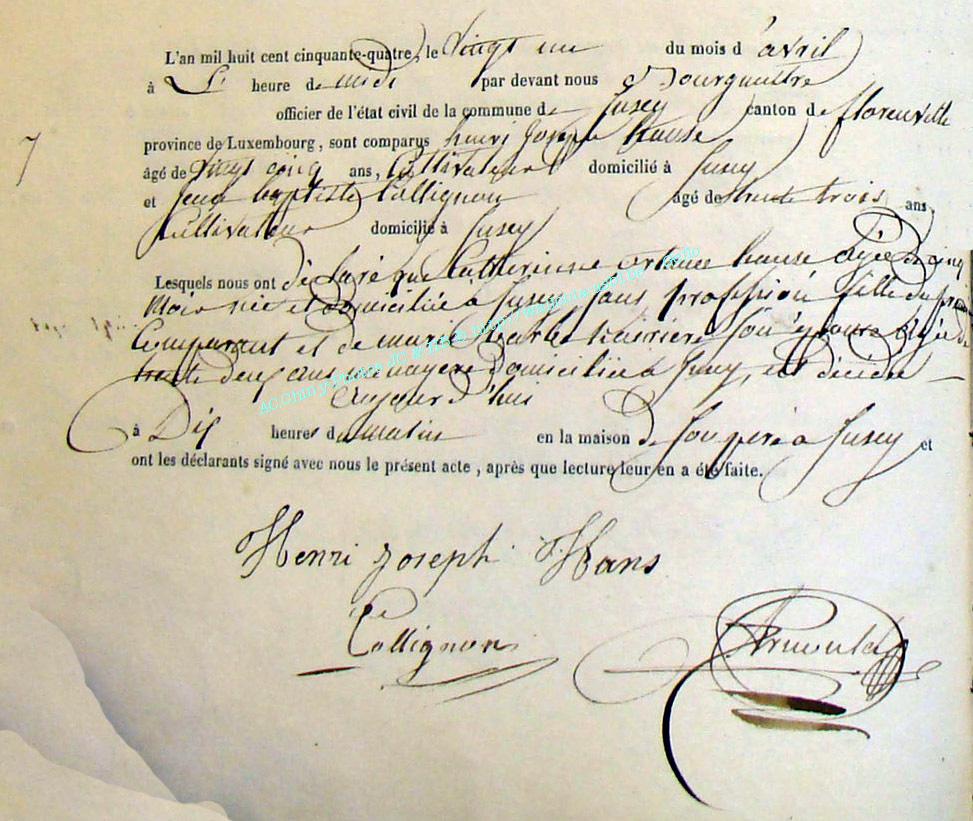 L'an mil huit cent cinquante-quatre, le vingt un du mois d'avril
à L' heure de midi par devant nous Bourgmestre
officier de l'état civil de la commune de Jusey canton de florenville
7
province de Luxembourg, sont comparus henri Joseph hanse
âgé de vingt cinq ans, Cultivateur domicilié à Jusey
et Jean baptiste Collignon âgé de trente trois ans,
Cultivateur domicilié à Jusey
Lesquels nous ont déclaré que Catherinne hanse agée de cinq
mois née et domiciliée à Jusey sans profession fille du
Comparant et de marie barbe son épouse agée de
trente deux ans menagere domiciliée à Jusey, est décédée
aujourd'hui
à Dix heures du matin en la maison de son père à Jusey et
ont les déclarants signé avec nous le présent acte, après que lecture leur en a été faite.
Henri Joseph Hans
Collignon